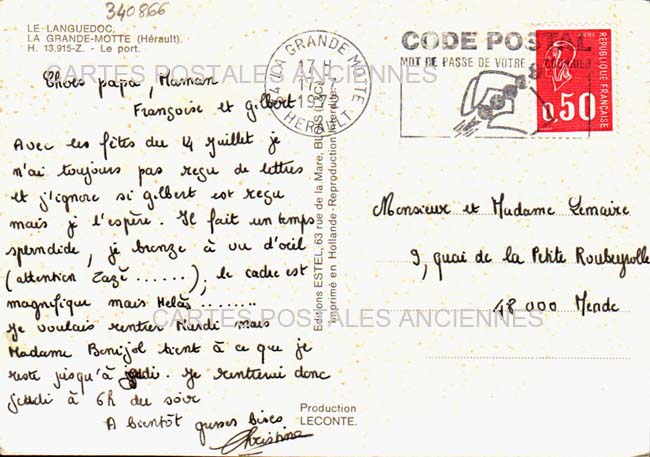 340866
LE LANGUEDOC,
LA GRANDE-MOTTE (Hérault).
H. 13.915-Z. - Le port.
CARTES POSTALES ANCIENNES
Chers papa, Maman
Françoise et Gilbert
Avec les fêtes du 14 Juillet je
n'ai toujours pas reçu de lettres
et j'ignore si Gilbert est reçu
mais je l'espère. Il fait un temps
splendide, je bronze à vu d'œil
(attention Zazé ......), le cadre est
magnifique mais Helàs ........
Je voulais rentrer Mardi mais
Madame Benijol tient à ce que je
reste jusqu'à jeudi. Je rentrerai donc
Jeudi à 6h du soir
A bientôt grosses bises
Christine
Editions ESTEL, 63 rue de la Mare, BLOIS (L&C)
Imprimé en Hollande - Reproduction interdite
Production
LECONTE.
34 LA GRANDE MOTTE
17 H
1972
HERAULT
CODE POSTAL
MOT DE PASSE DE VOTRE COURRIER
REPUBLIQUE FRANÇAISE
POSTES
0,50
Monsieur et Madame Lemaire
9, quai de la Petite Roubeyrolle
48000 Mende
CARTES POSTALES ANCIENNES